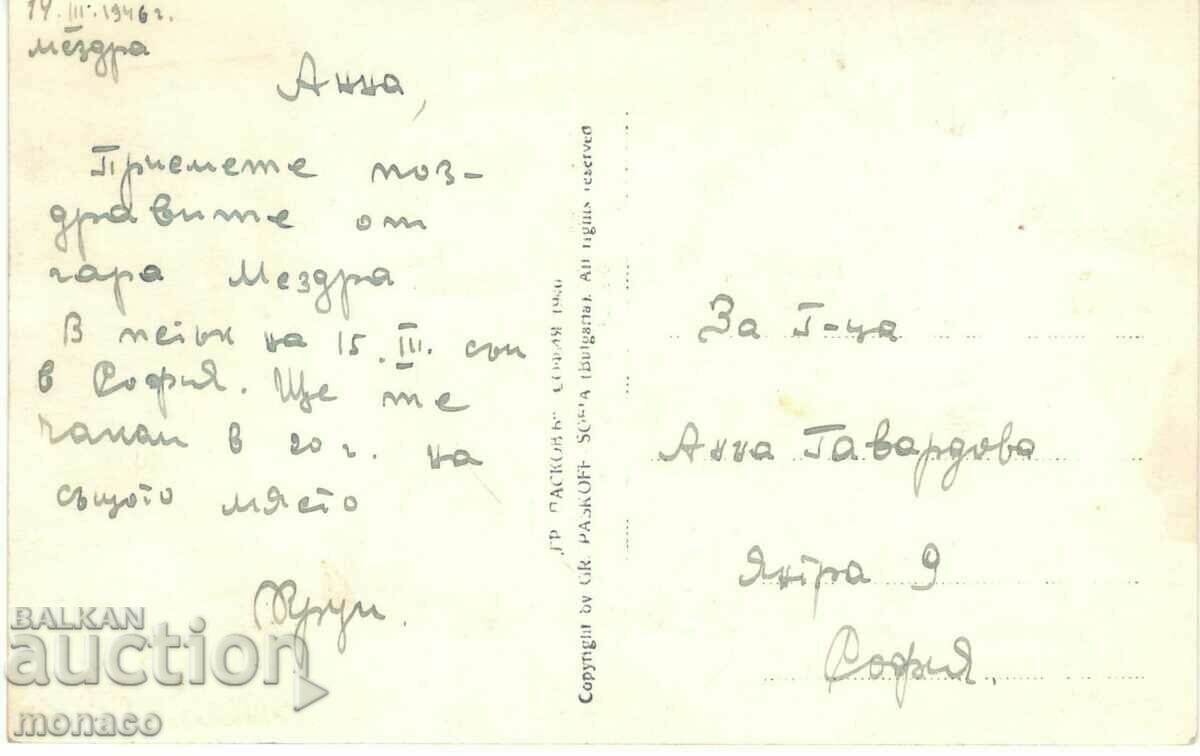 14.III.1946 г.
Мездра
Анна,
Приемете поз-
дравите от
гара Мездра
В петък на 15.III. съм
в София. Ще те
чакам в 20 г. на
същото място
За Г-ца
Анна Гавардова
Янтра 9
София.
ГР. ПАСКОВЪ СОФИЯ
Copyright by GR. PASKOFF SOFIA (Bulgaria). All rights reserved
BALKAN
auction
monaco